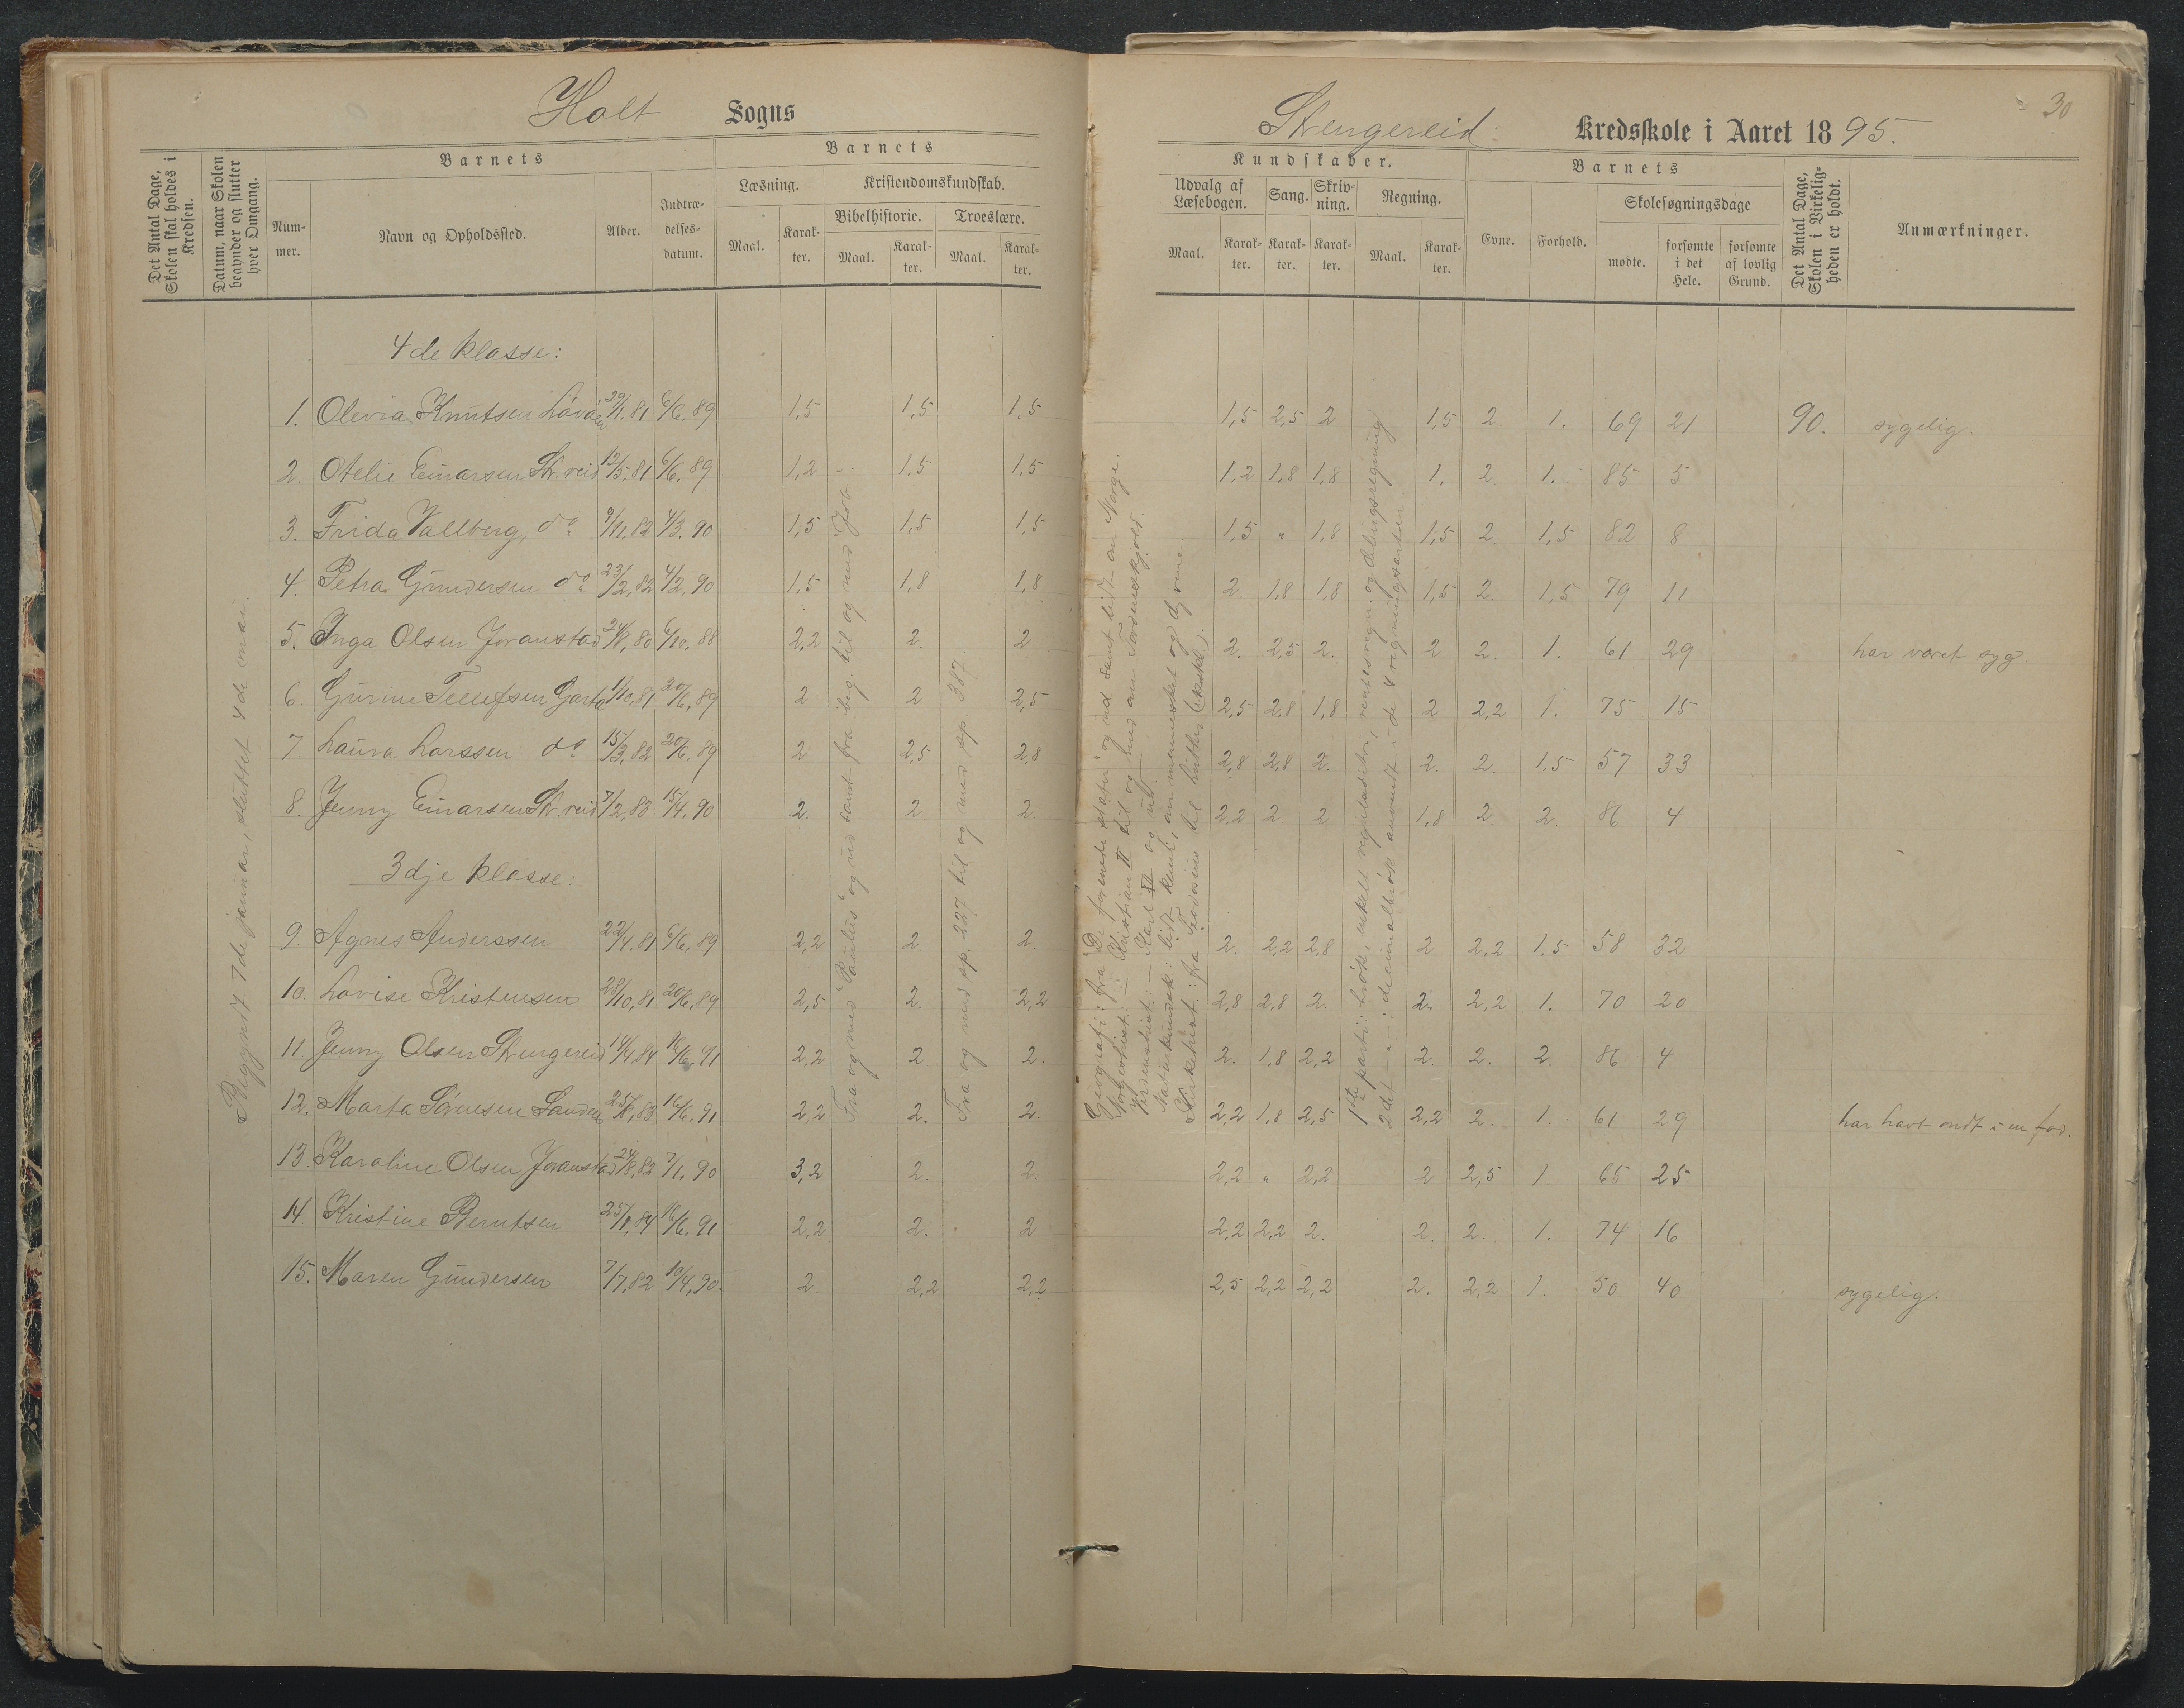 Holt Sogns
Det Antal Dage, Skolen skal holdes i Kredsen.
Datum, naar Skolen begynder og slutter hver Omgang.
Barnets
Nummer.
Navn og Opholdssted.
Alder.
Indtrædelsesdatum.
Barnets
Læsning.
Kristendomskundskab.
Bibelhistorie.
Troeslære.
Maal.
Karakter.
Maal.
Karakter.
Maal.
Karakter.
Begyndt 7de januar, sluttet 4de mai.
4de klasse:
1. Olevia Knutsen 29/1,81 6/6,89 1,5 1,5 1,5
2. Otelie Einarsen St.reid 12/5,81 6/6,89 1,2 1,5 1,5
3. Frida Vallberg, do 9/11,82 4/3,90 1,5 1,5 1,5
4. Petra Gundersen do 23/2,82 4/2,90 1,5 1,8 1,8
5. Inga Olsen Joranstad 24/8,80 6/10,88 2,2 2. 2
6. Gurine Tellefsen Garta 1/10,81 20/6,89 2 2 2,5
7. Laura Larssen do 15/3,82 20/6,89 2 2,5 2,8
8. Jenny Einarsen St.reid 7/2,83 15/4,90 2. 2 2.
3dje klasse:
9. Agnes Anderssen 22/4,81 6/6,89 2,2 2. 2.
10. Lovise Kristensen 28/10,81 20/6,89 2,5 2. 2,2
11. Jenny Olsen Stengereid 14/4,84 16/6,91 2,2 2. 2.
12. Marta Sørensen 25/8,83 16/6,91 2,2 2. 2.
13. Karoline Olsen Joranstad 24/8,82 7/1,90 3,2 2. 2.
14. Kristine Berntsen 25/1,84 16/6,91 2,2 2. 2
15. Maren Gundersen 7/7,82 10/4,90. 2. 2,2 2,2
Fra og med "Paulus" og ud samt fra beg. til og med Job.
Fra og med sp. 227 til og med sp. 387.
30
Stengereid Kredsskole i Aaret 1895.
Kundskaber.
Udvalg af Læsebogen.
Sang.
Skrivning.
Regning.
Maal.
Karakter.
Karakter.
Karakter.
Maal.
Karakter.
Barnets
Evne.
Forhold.
Skolesøgningsdage
mødte.
forsømte i det Hele.
forsømte af lovlig Grund.
Det Antal Dage, Skolen i Virkeligheden er holdt.
Anmærkninger.
Geografi: fra De forenede stater og ud samt lidt om Norge.
Norgeshist.: – Kristian II til og med om Tordenskjold.
Verdenshist.: – Karl XII og ud.
Naturkundsk.: lidt kemi, om mennesket og dyrene.
Kirkehist.: fra Teodosius til Luther
1ste parti: brøk, enkelt reguladetri, rentesregn. og delingsregning
2det –: decimalbrøk anvendt i de 4 regningsarter
1,5 2,5 2 1,5 2 1. 69 21 90. sygelig.
1,2 1,8 1,8 1. 2 1. 85 5
1,5 " 1,8 1,5 2. 1,5 82 8
2. 1,8 1,8 1,5 2. 1,5 79 11
2. 2,5 2. 2 2. 1. 61 29 har været syg
2,5 2,8 1,8 2 2,2 1. 75 15
2,8 2,8 2. 2. 2. 1,5 57 33
2,2 2 2 1,8 2 2. 86 4
2. 2,2 2,8 2 2,2 1,5 58 32
2,8 2,8 2. 2. 2,2 1. 70 20
2. 1,8 2,2 2. 2. 2. 86 4
2,2 1,8 2,5 2,2 2. 1. 61 29 har havt ondt i en fod.
2,2 " 2,2 2 2,5 1. 65 25
2,2 2,2 2. 2. 2. 1. 74 16
2,5 2,2 2,2 2. 2,2 1. 50 40 sygelig.